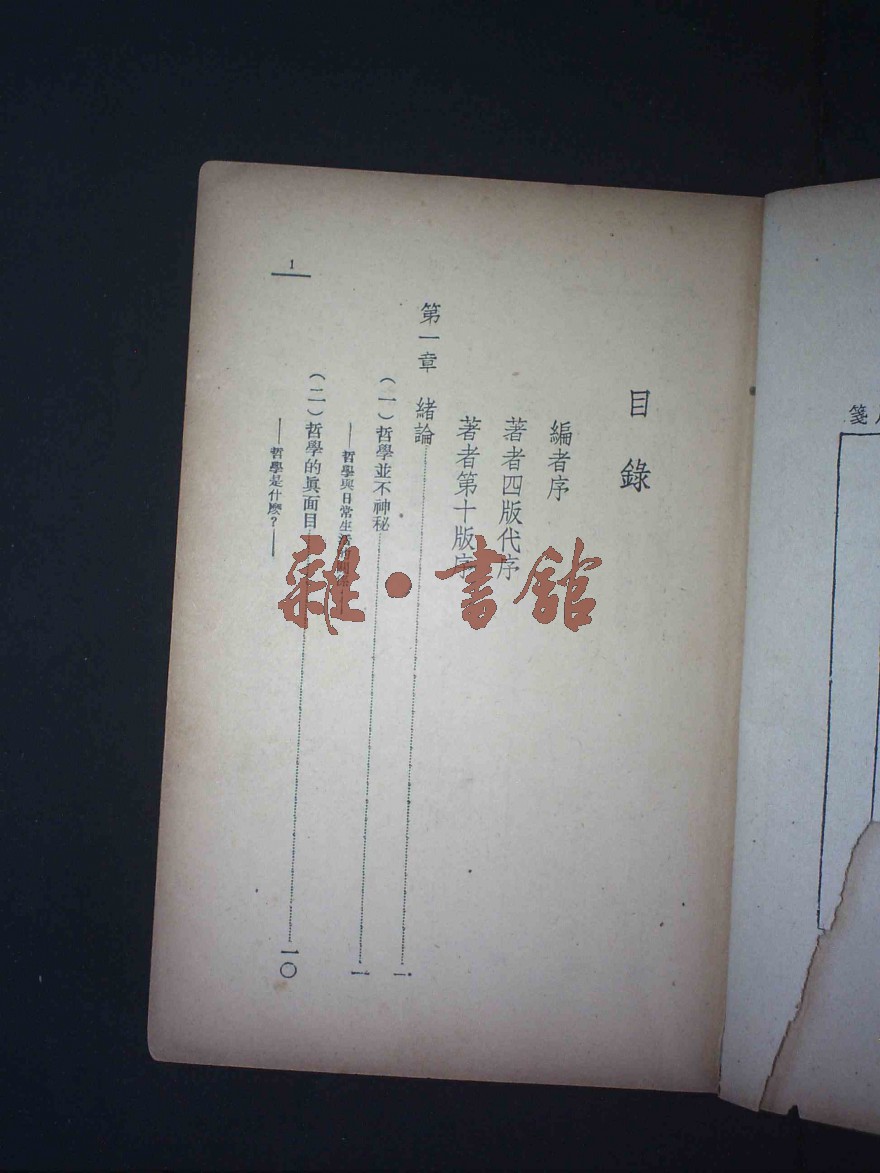 目錄
編者序
著者四版代序
著者第十版序
第一章 緒論……一
（一）哲學並不神秘……一
——哲學與日常生活的關係——
（二）哲學的眞面目……一〇
——哲學是什麼？——
1
雜·書館
箋